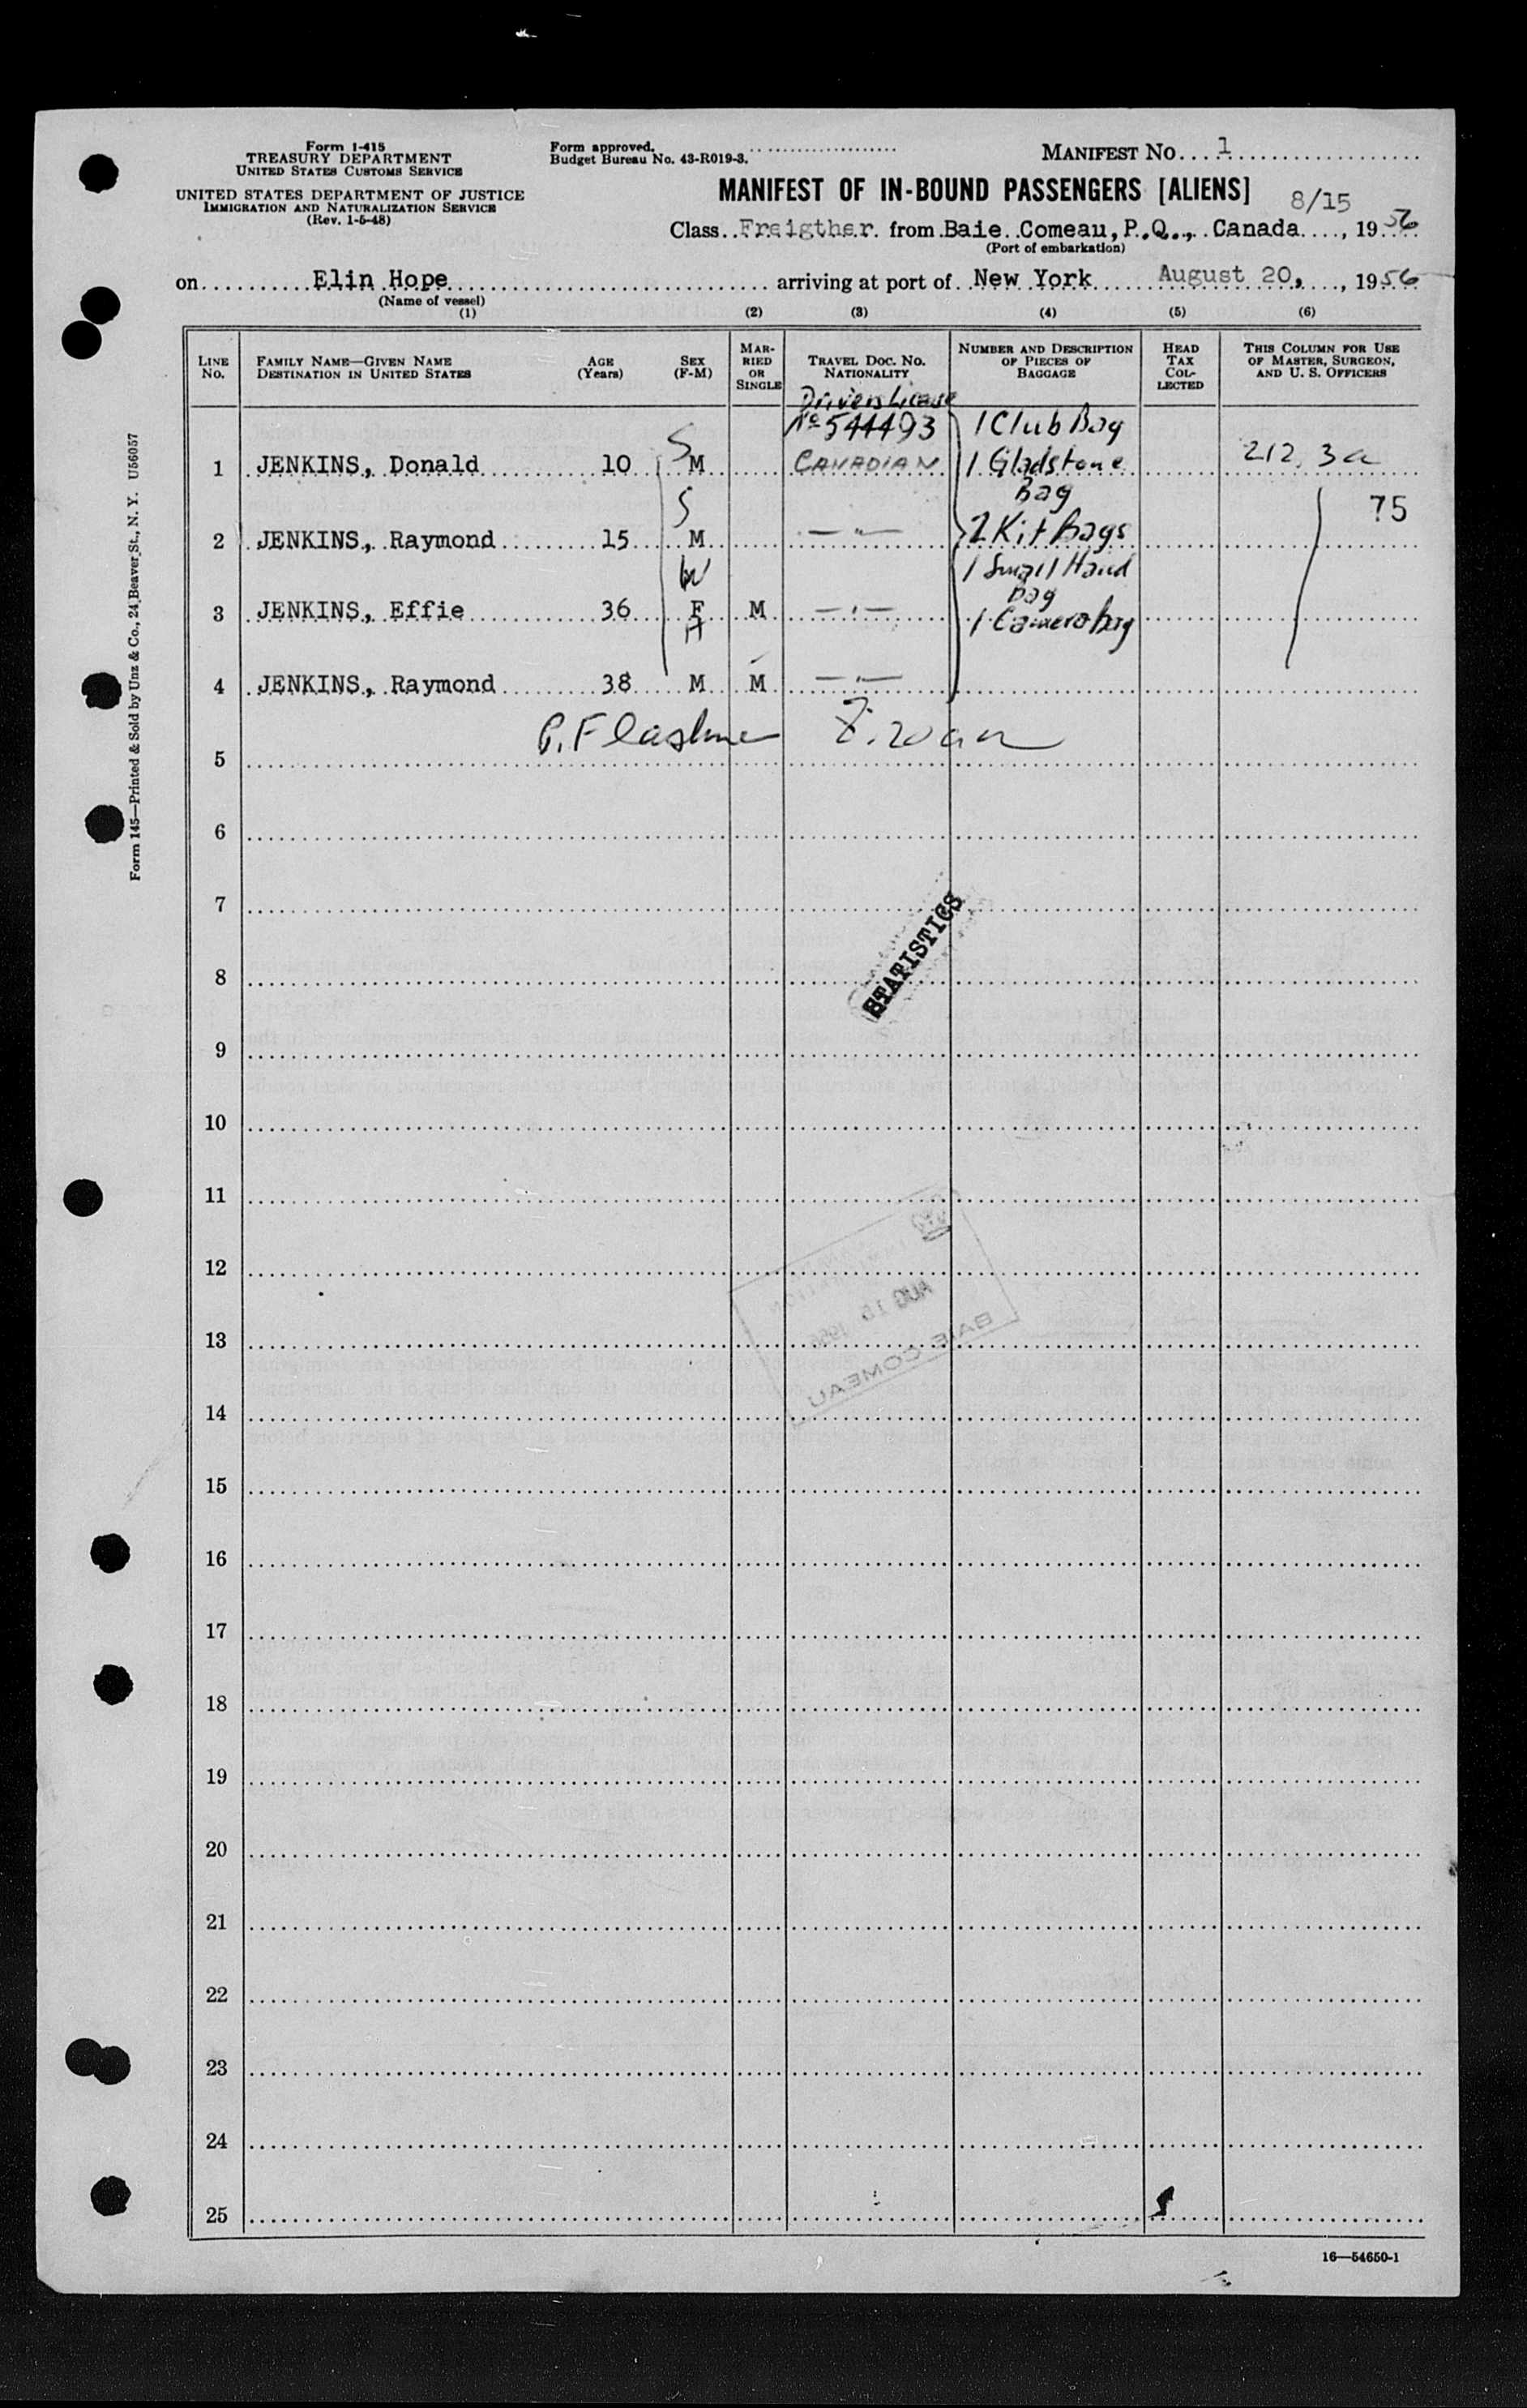 Form I-415
TREASURY DEPARTMENT
UNITED STATES CUSTOMS SERVICE
UNITED STATES DEPARTMENT OF JUSTICE
IMMIGRATION AND NATURALIZATION SERVICE
(Rev. 1-5-48)
Form approved.
Budget Bureau No. 43-R019-3.
MANIFEST NO. 1
MANIFEST OF IN-BOUND PASSENGERS [ALIENS]
8/15
Class Freigther from Baie Comeau, P.Q., Canada, 1956
(Port of embarkation)
on Elin Hope arriving at port of New York August 20, 1956
(Name of vessel)
(1) (2) (3) (4) (5) (6)
LINE NO. FAMILY NAME—GIVEN NAME DESTINATION IN UNITED STATES AGE (Years) SEX (F-M) MARRIED OR SINGLE TRAVEL DOC. NO. NATIONALITY NUMBER AND DESCRIPTION OF PIECES OF BAGGAGE HEAD TAX COLLECTED THIS COLUMN FOR USE OF MASTER, SURGEON, AND U. S. OFFICERS
Drivers License
No 544493 1 Club Bag
1 JENKINS, Donald 10 S M CANADIAN 1 Gladstone Bag 212.3a
75
2 JENKINS, Raymond 15 S M — " — 2 Kit Bags
1 Small Hand Bag
3 JENKINS, Effie 36 W F M — " — 1 Camera bag
H
4 JENKINS, Raymond 38 M M — " —
5
6
7
STATISTICS
8
9
10
11
12
AUG 15 1956
13
BAIE COMEAU
14
15
16
17
18
19
20
21
22
23
24
25
16—54650-1
Form 145—Printed & Sold by Unz & Co., 24 Beaver St., N. Y. U56057